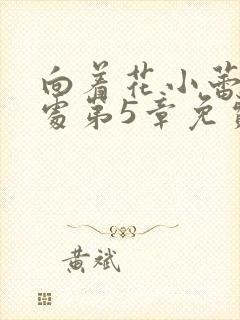 向着花小蕾
处第5章免费
黄斌